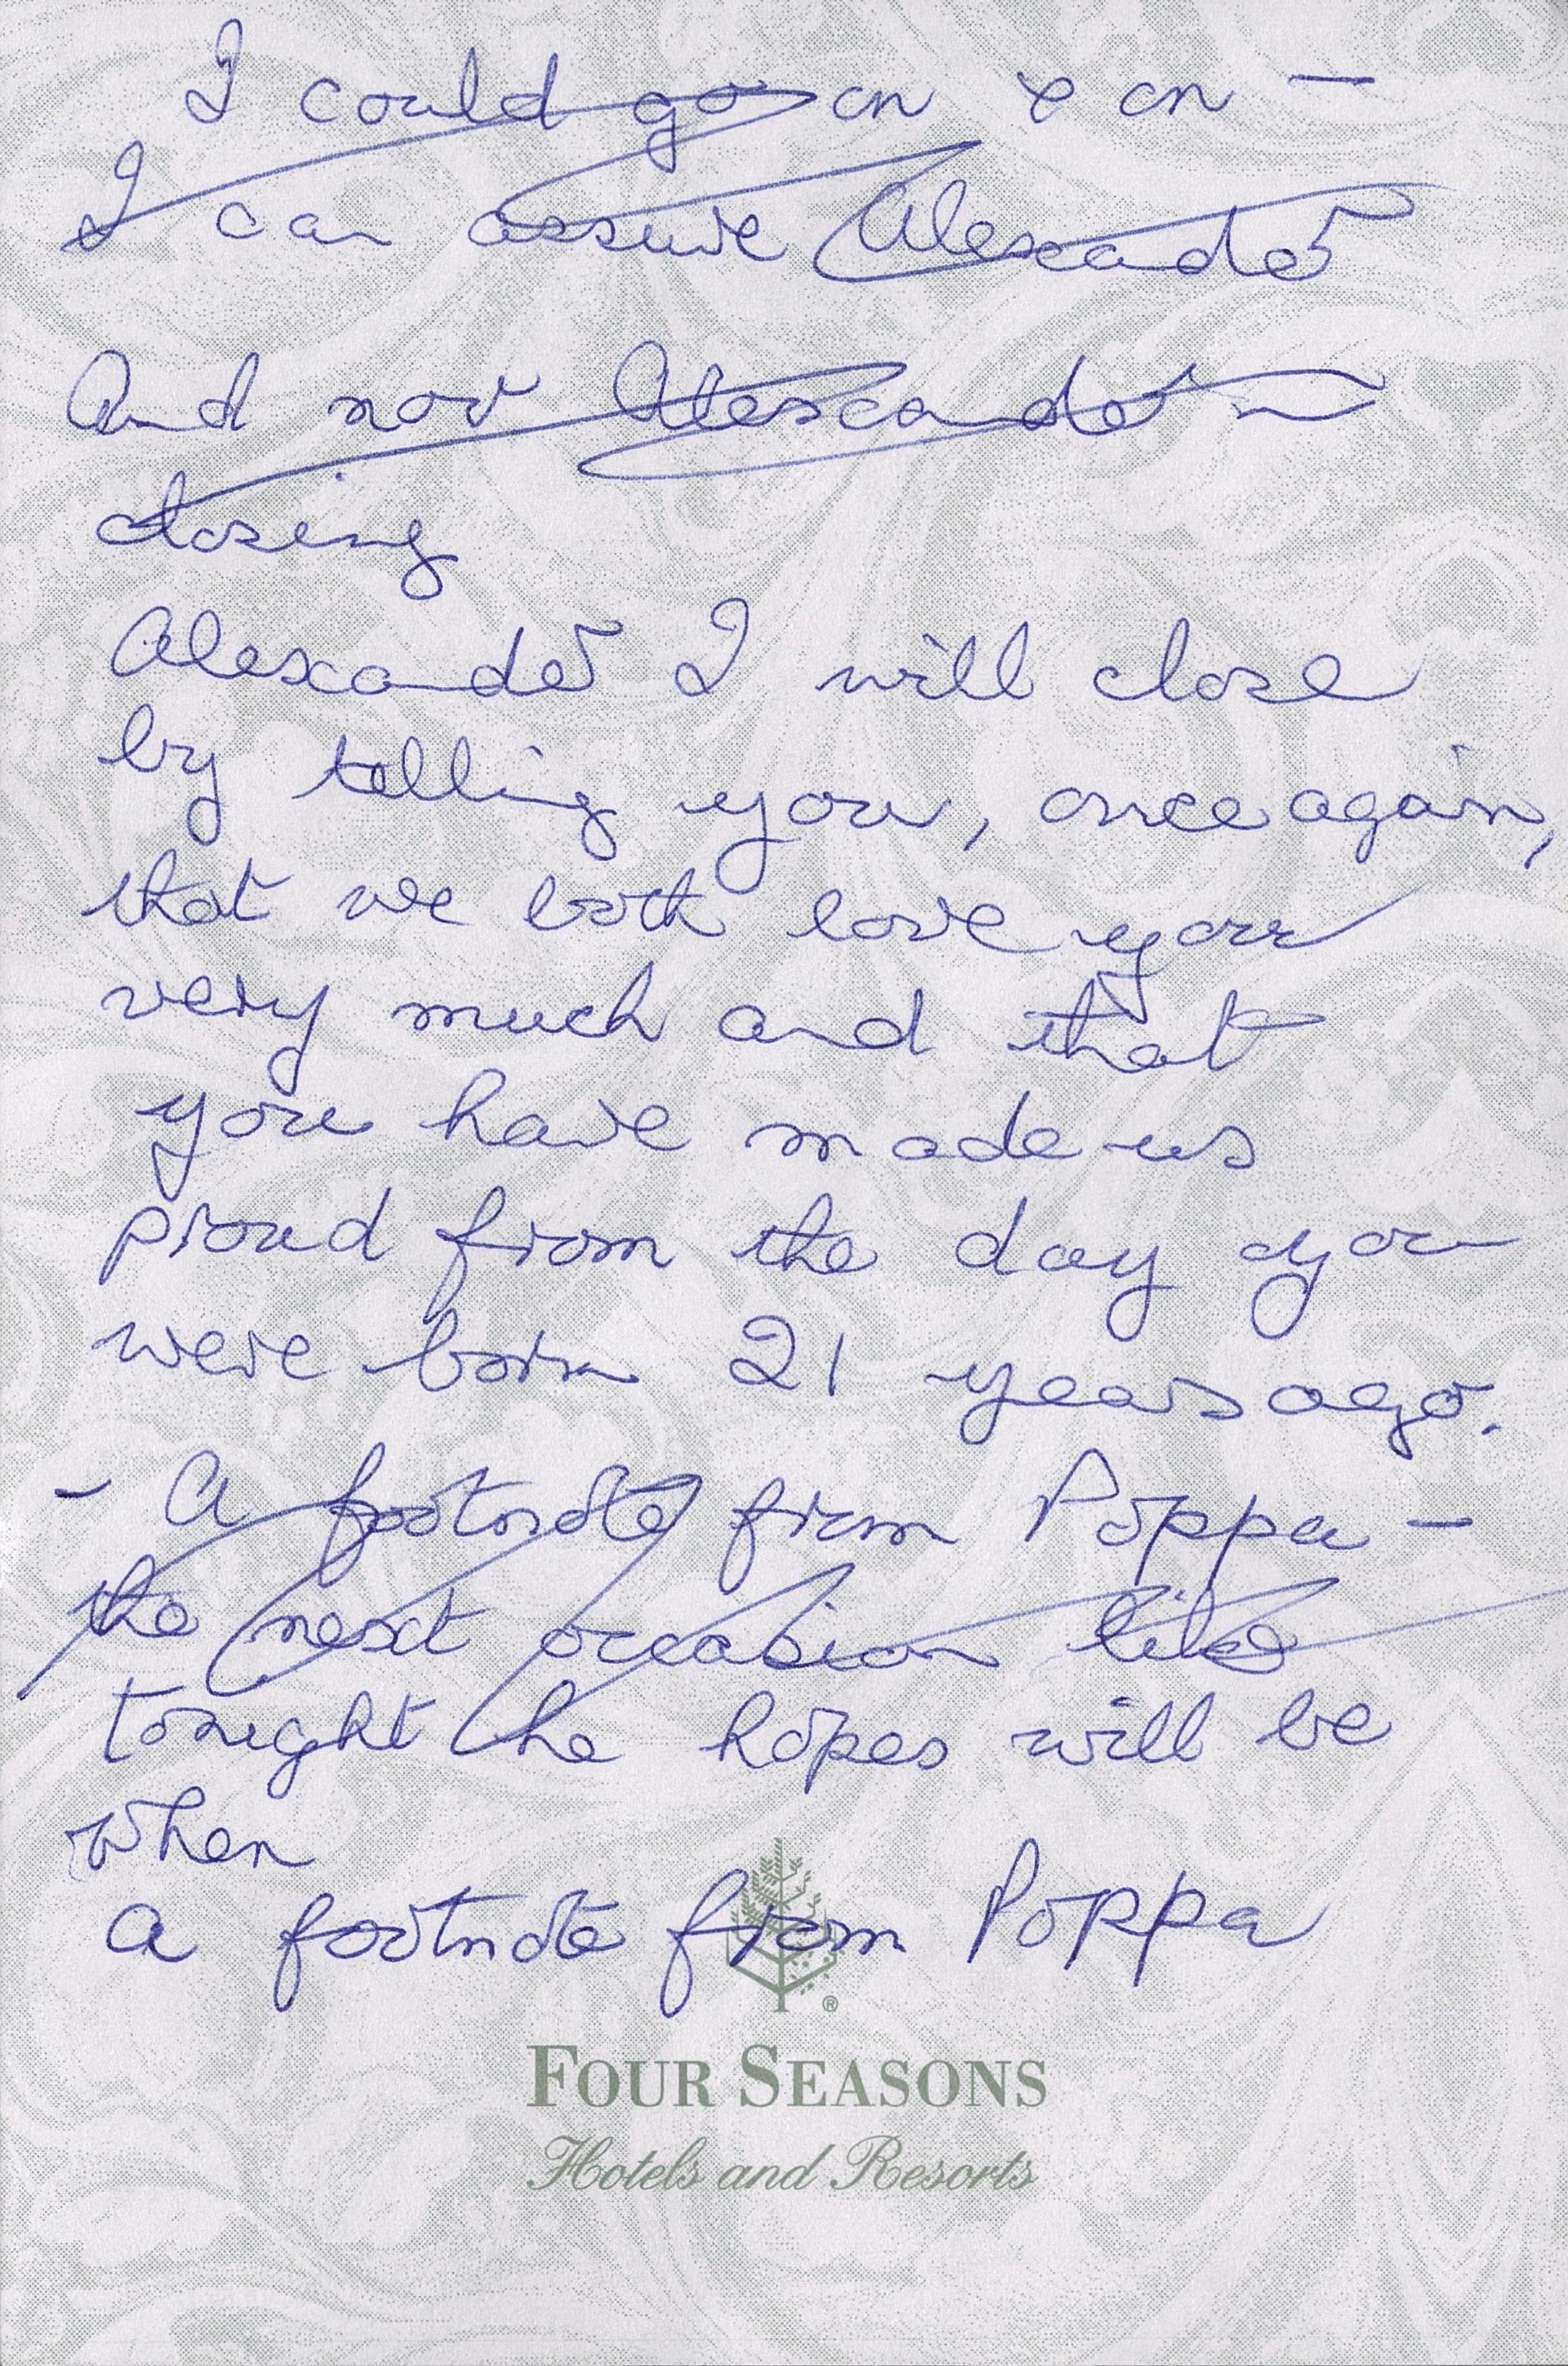 I could go on & on —
I can assure Alexander
And now Alexander in
closing
Alexander I will close
by telling you, once again,
that we both love you
very much and that
you have made us
proud from the day you
were born 21 years ago.
- A footnote from Poppa -
the next occasion like
tonight he hopes will be
when
a footnote from Poppa
®
FOUR SEASONS
Hotels and Resorts